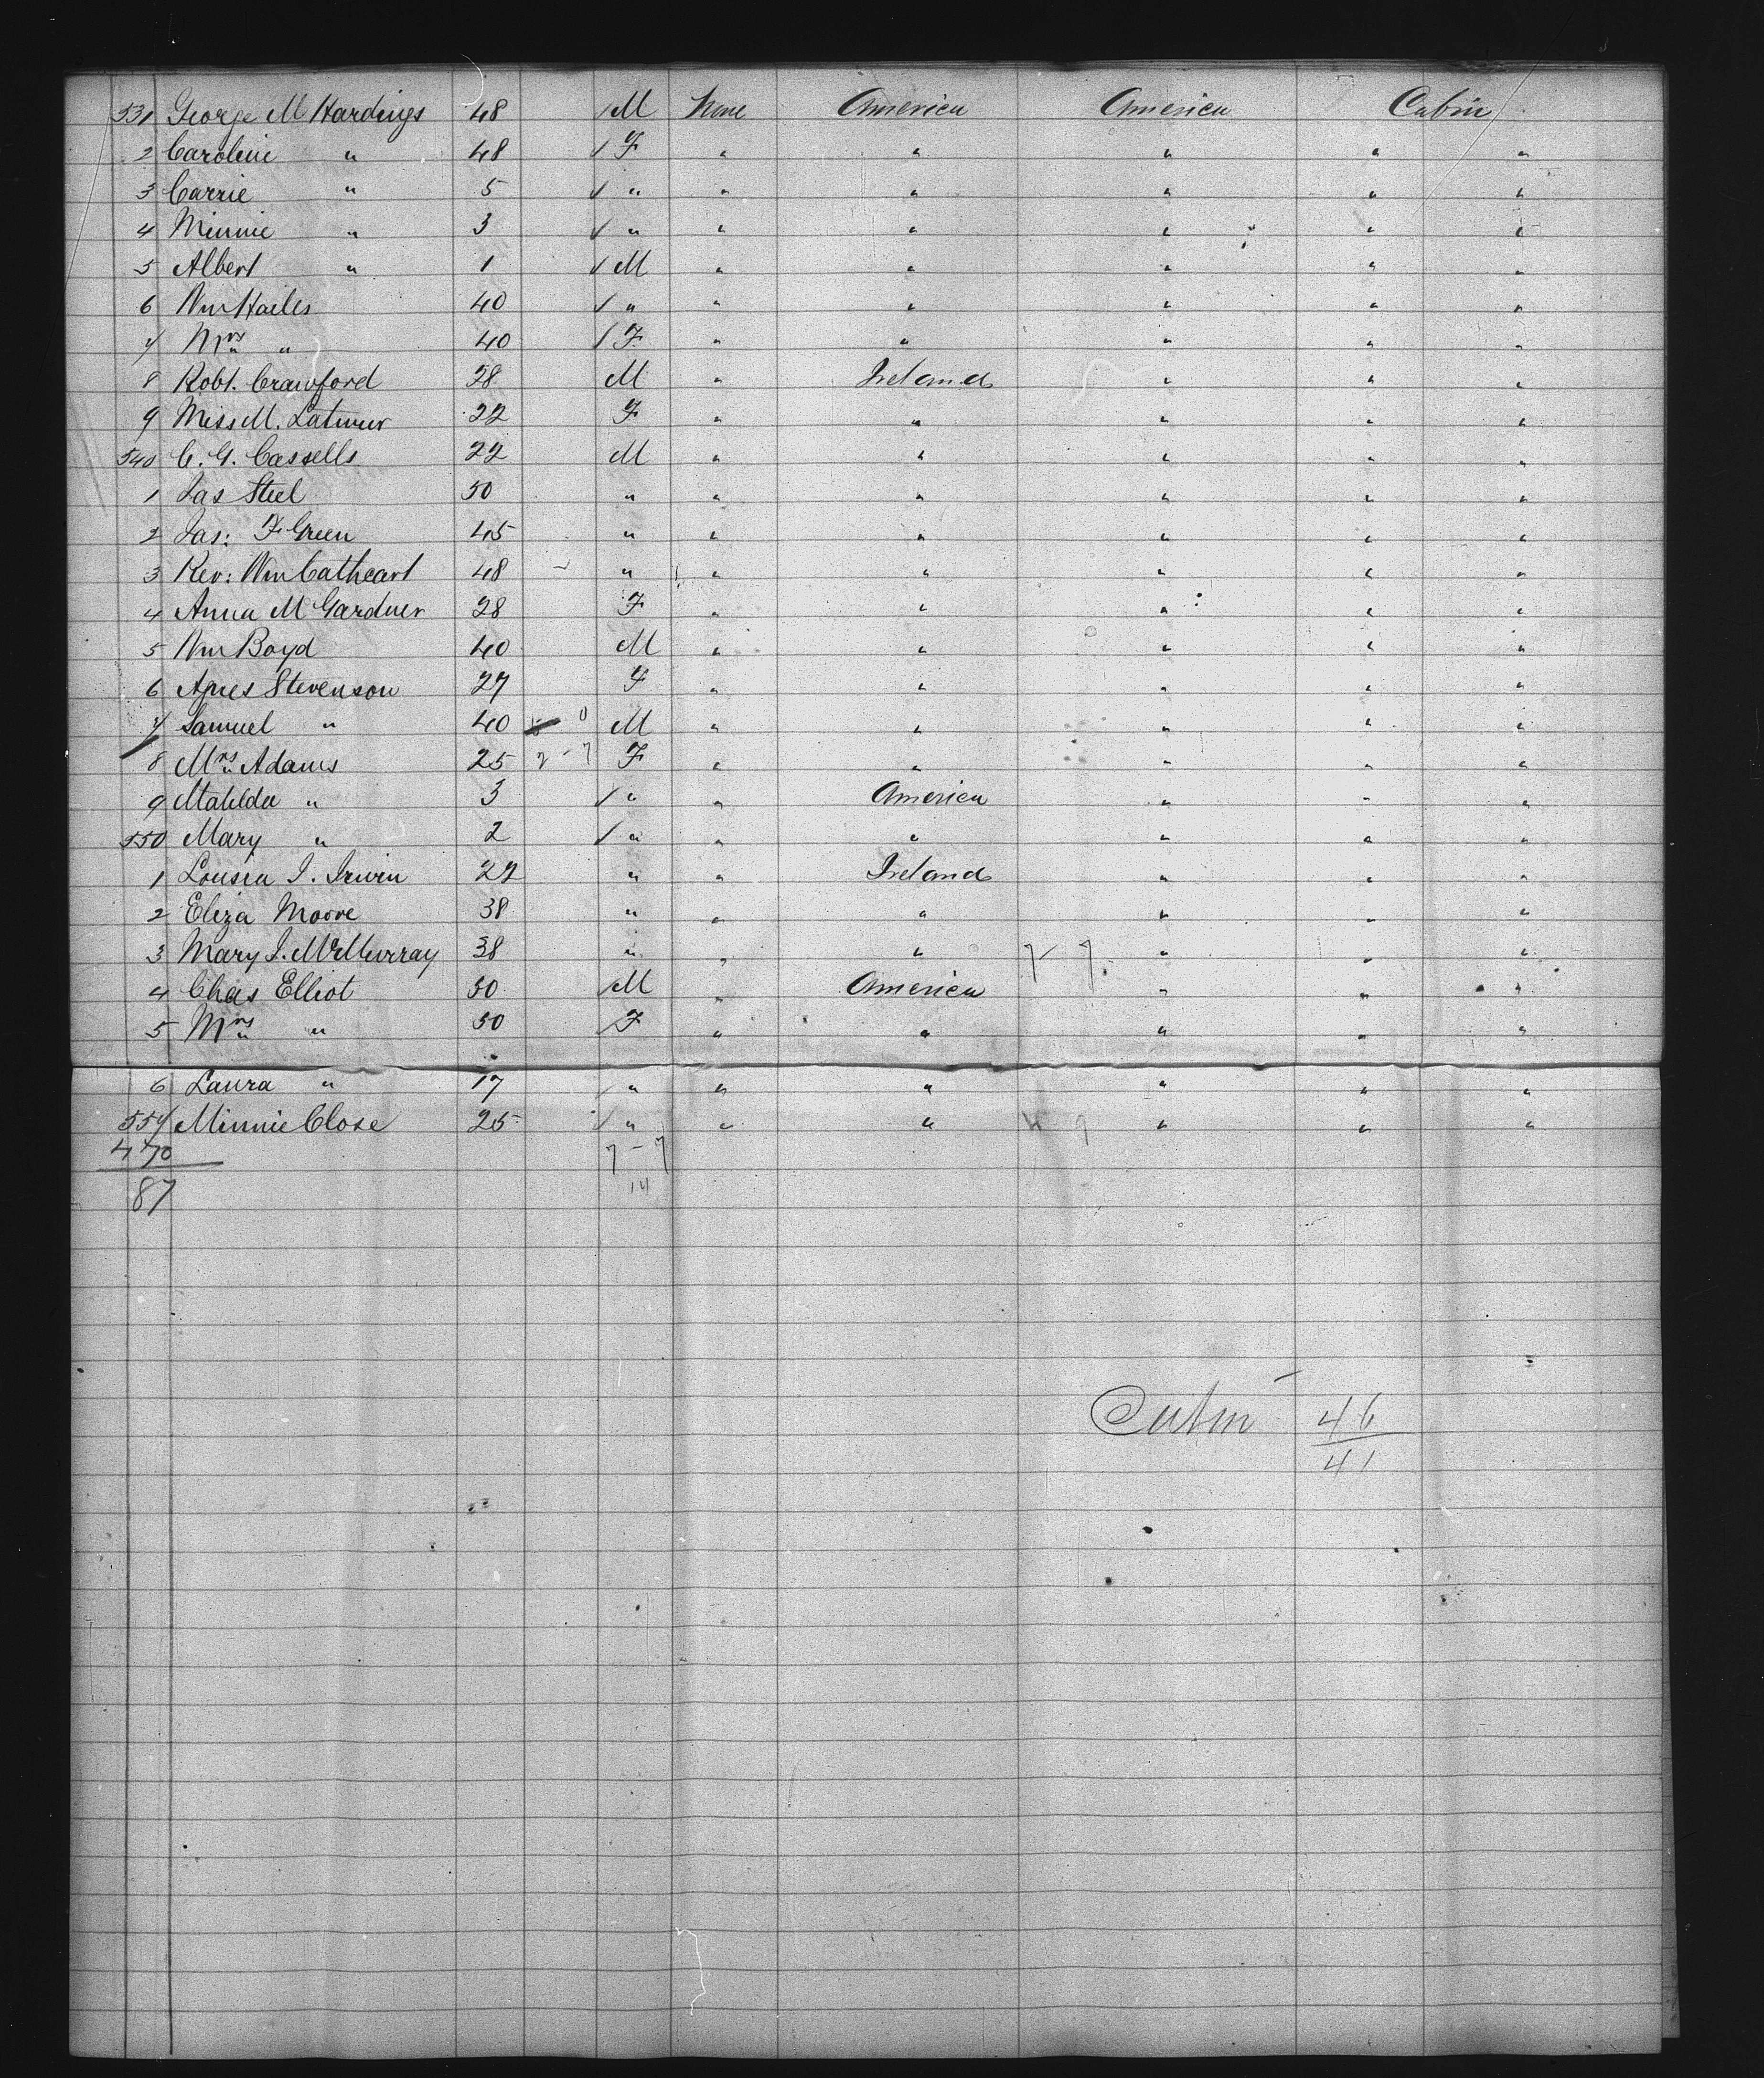 531 George M Hardings 48 M None America America Cabin
2 Caroline " 48 F " " " " "
3 Carrie " 5 " " " " " "
4 Minnie " 3 " " " " " "
5 Albert " 1 M " " " " "
6 Wm Hailes 40 " " " " " "
7 Mrs " 40 F " " " " "
8 Robt. Crawford 28 M " Ireland " " "
9 Miss M. Latimer 22 F " " " " "
540 C. G. Cassells 22 M " " " " "
1 Jas Steel 50 " " " " " "
2 Jas: F Green 45 " " " " " "
3 Rev: Wm Cathcart 48 " " " " " "
4 Anna M Gardner 28 F " " " " "
5 Wm Boyd 40 M " " " " "
6 Agnes Stevenson 27 F " " " " "
7 Samuel " 40 0 M " " " " "
8 Mrs Adams 25 2-7 F " " " " "
9 Matilda " 3 " " America " " "
550 Mary " 2 " " " " " "
1 Lousia I. Irwin 22 " " Ireland " " "
2 Eliza Moore 38 " " " " " "
3 Mary J. McMurray 38 " " " 7-7. " " "
4 Chas Elliot 50 M " America " " "
5 Mrs " 50 F " " " " "
6 Laura " 17 " " " " " "
557 Minnie Close 25 " " " " " "
470 7-7
87 14
Cabin 46
41